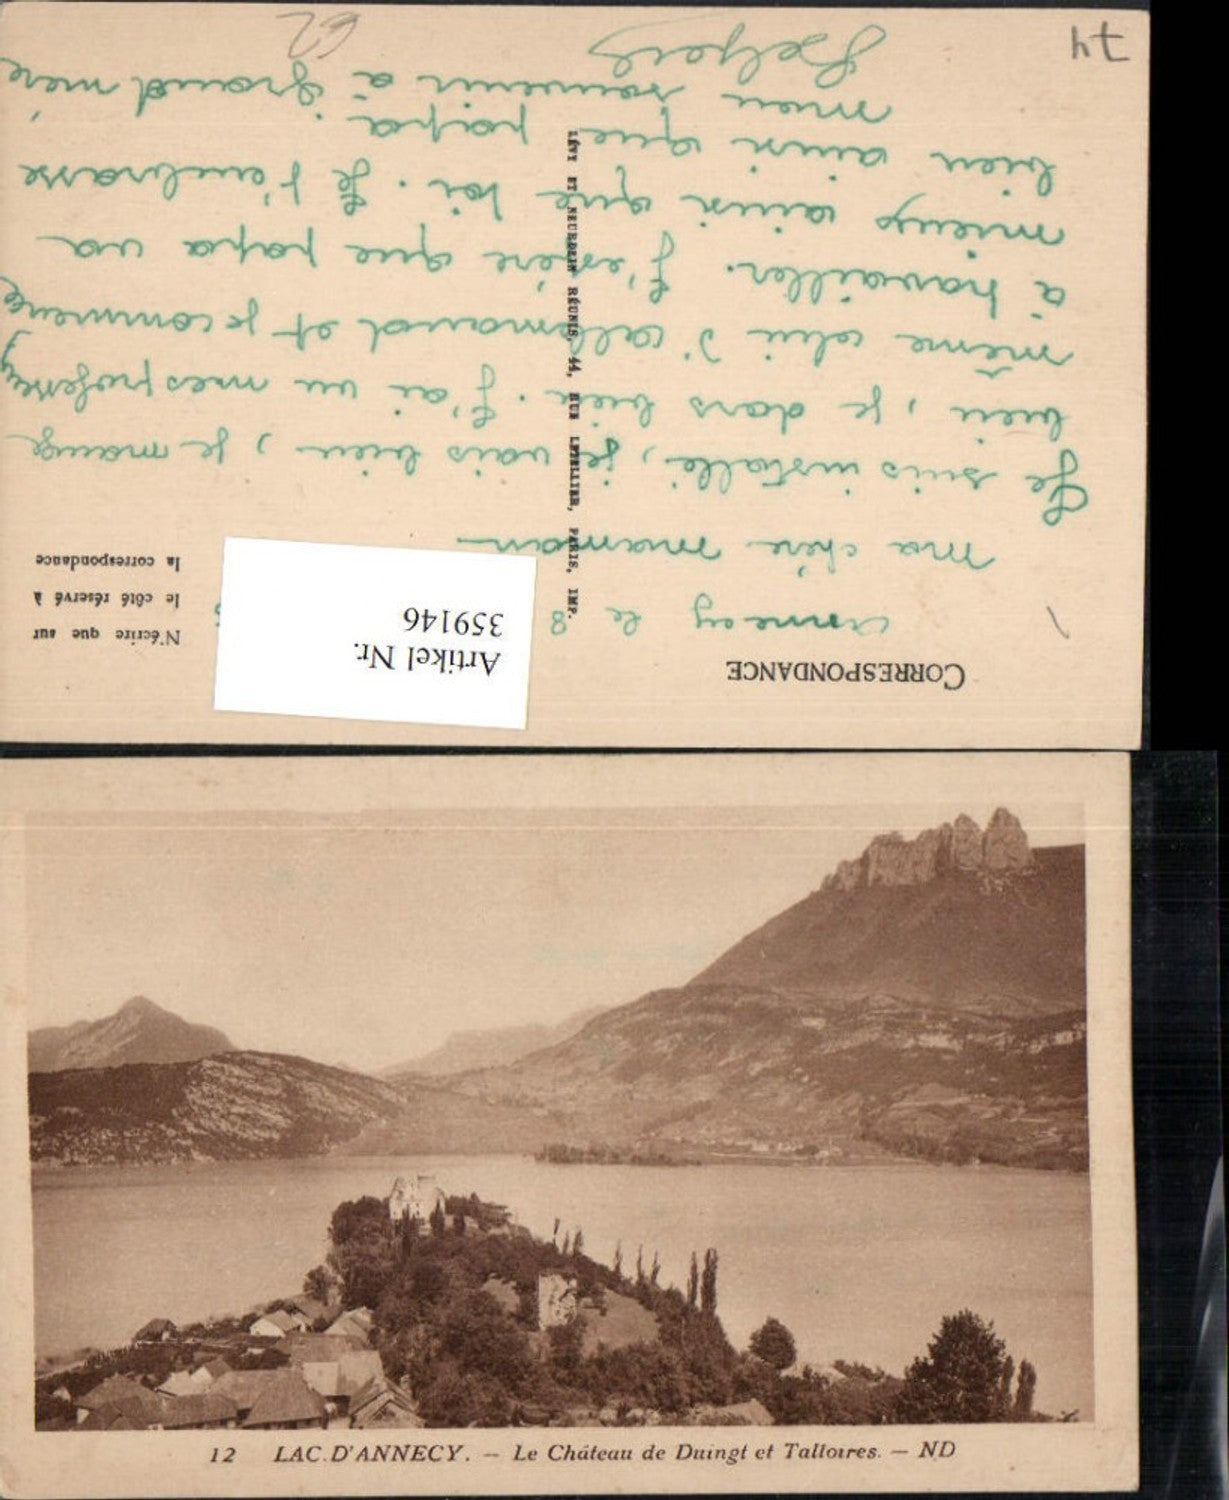 CORRESPONDANCE
N'écrire que sur
le côté réservé à
la correspondance
Artikel Nr.
359146
Annecy le 8
ma chère maman
Je suis installé, je vais bien, je mange
bien, je dors bien. J'ai vu mes professeurs
même celui d'allemand et je commence
à travailler. J'espère que papa va
mieux ainsi que toi. Je t'embrasse
bien ainsi que papa
mon souvenir à grand mère
LÉVY ET NEURDEIN RÉUNIS, 44, RUE LETELLIER, PARIS, IMP.
74
62
12 LAC D'ANNECY. — Le Château de Duingt et Talloires. — ND